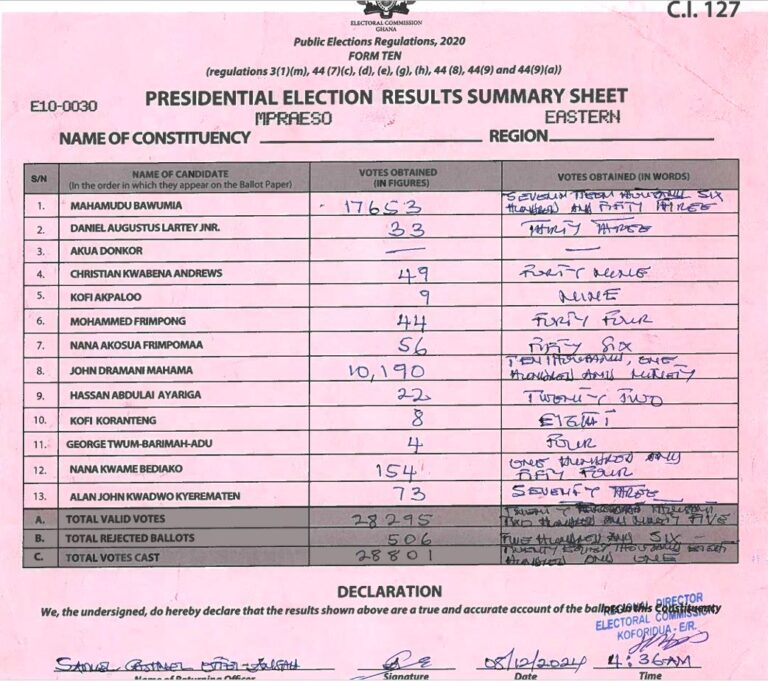 C.I. 127
ELECTORAL COMMISSION
GHANA
Public Elections Regulations, 2020
FORM TEN
(regulations 3(1)(m), 44 (7)(c), (d), (e), (g), (h), 44 (8), 44(9) and 44(9)(a))
E10-0030
PRESIDENTIAL ELECTION RESULTS SUMMARY SHEET
NAME OF CONSTITUENCY MPRAESO REGION EASTERN
S/N NAME OF CANDIDATE (In the order in which they appear on the Ballot Paper) VOTES OBTAINED (IN FIGURES) VOTES OBTAINED (IN WORDS)
1. MAHAMUDU BAWUMIA 17653 SIX HUNDRED AND FIFTY THREE
2. DANIEL AUGUSTUS LARTEY JNR. 33 THIRTY THREE
3. AKUA DONKOR —— ——
4. CHRISTIAN KWABENA ANDREWS 49 FORTY NINE
5. KOFI AKPALOO 9 NINE
6. MOHAMMED FRIMPONG 44 FORTY FOUR
7. NANA AKOSUA FRIMPOMAA 56 FIFTY SIX
8. JOHN DRAMANI MAHAMA 10,190 TEN THOUSAND, ONE HUNDRED AND NINETY
9. HASSAN ABDULAI AYARIGA 22 TWENTY TWO
10. KOFI KORANTENG 8 EIGHT
11. GEORGE TWUM-BARIMAH-ADU 4 FOUR
12. NANA KWAME BEDIAKO 154 ONE HUNDRED AND FIFTY FOUR
13. ALAN JOHN KWADWO KYEREMATEN 73 SEVENTY THREE
A. TOTAL VALID VOTES 28295 TWO HUNDRED AND NINETY FIVE
B. TOTAL REJECTED BALLOTS 506 FIVE HUNDRED AND SIX
C. TOTAL VOTES CAST 28801 TWENTY EIGHT THOUSAND EIGHT HUNDRED AND ONE
DECLARATION
We, the undersigned, do hereby declare that the results shown above are a true and accurate account of the ballots in this Constituency
REGIONAL DIRECTOR
ELECTORAL COMMISSION
KOFORIDUA - E/R.
08/12/2024 4:36AM
Name of Returning Officer Signature Date Time